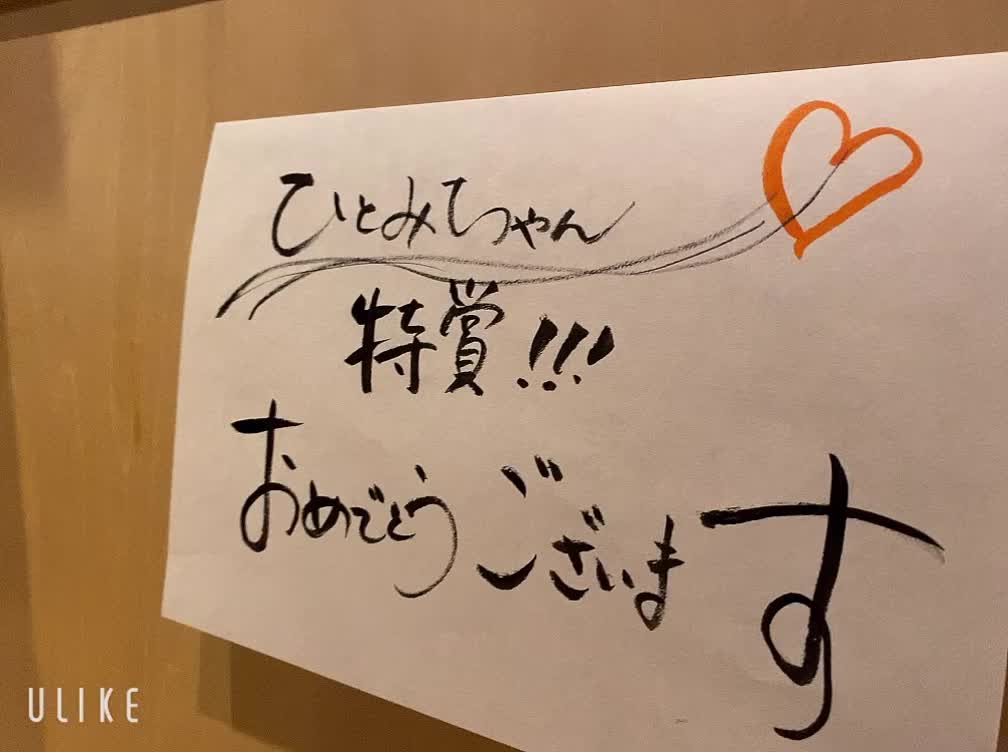 ひとみちゃん
特賞!!!
おめでとうございます
ULIKE